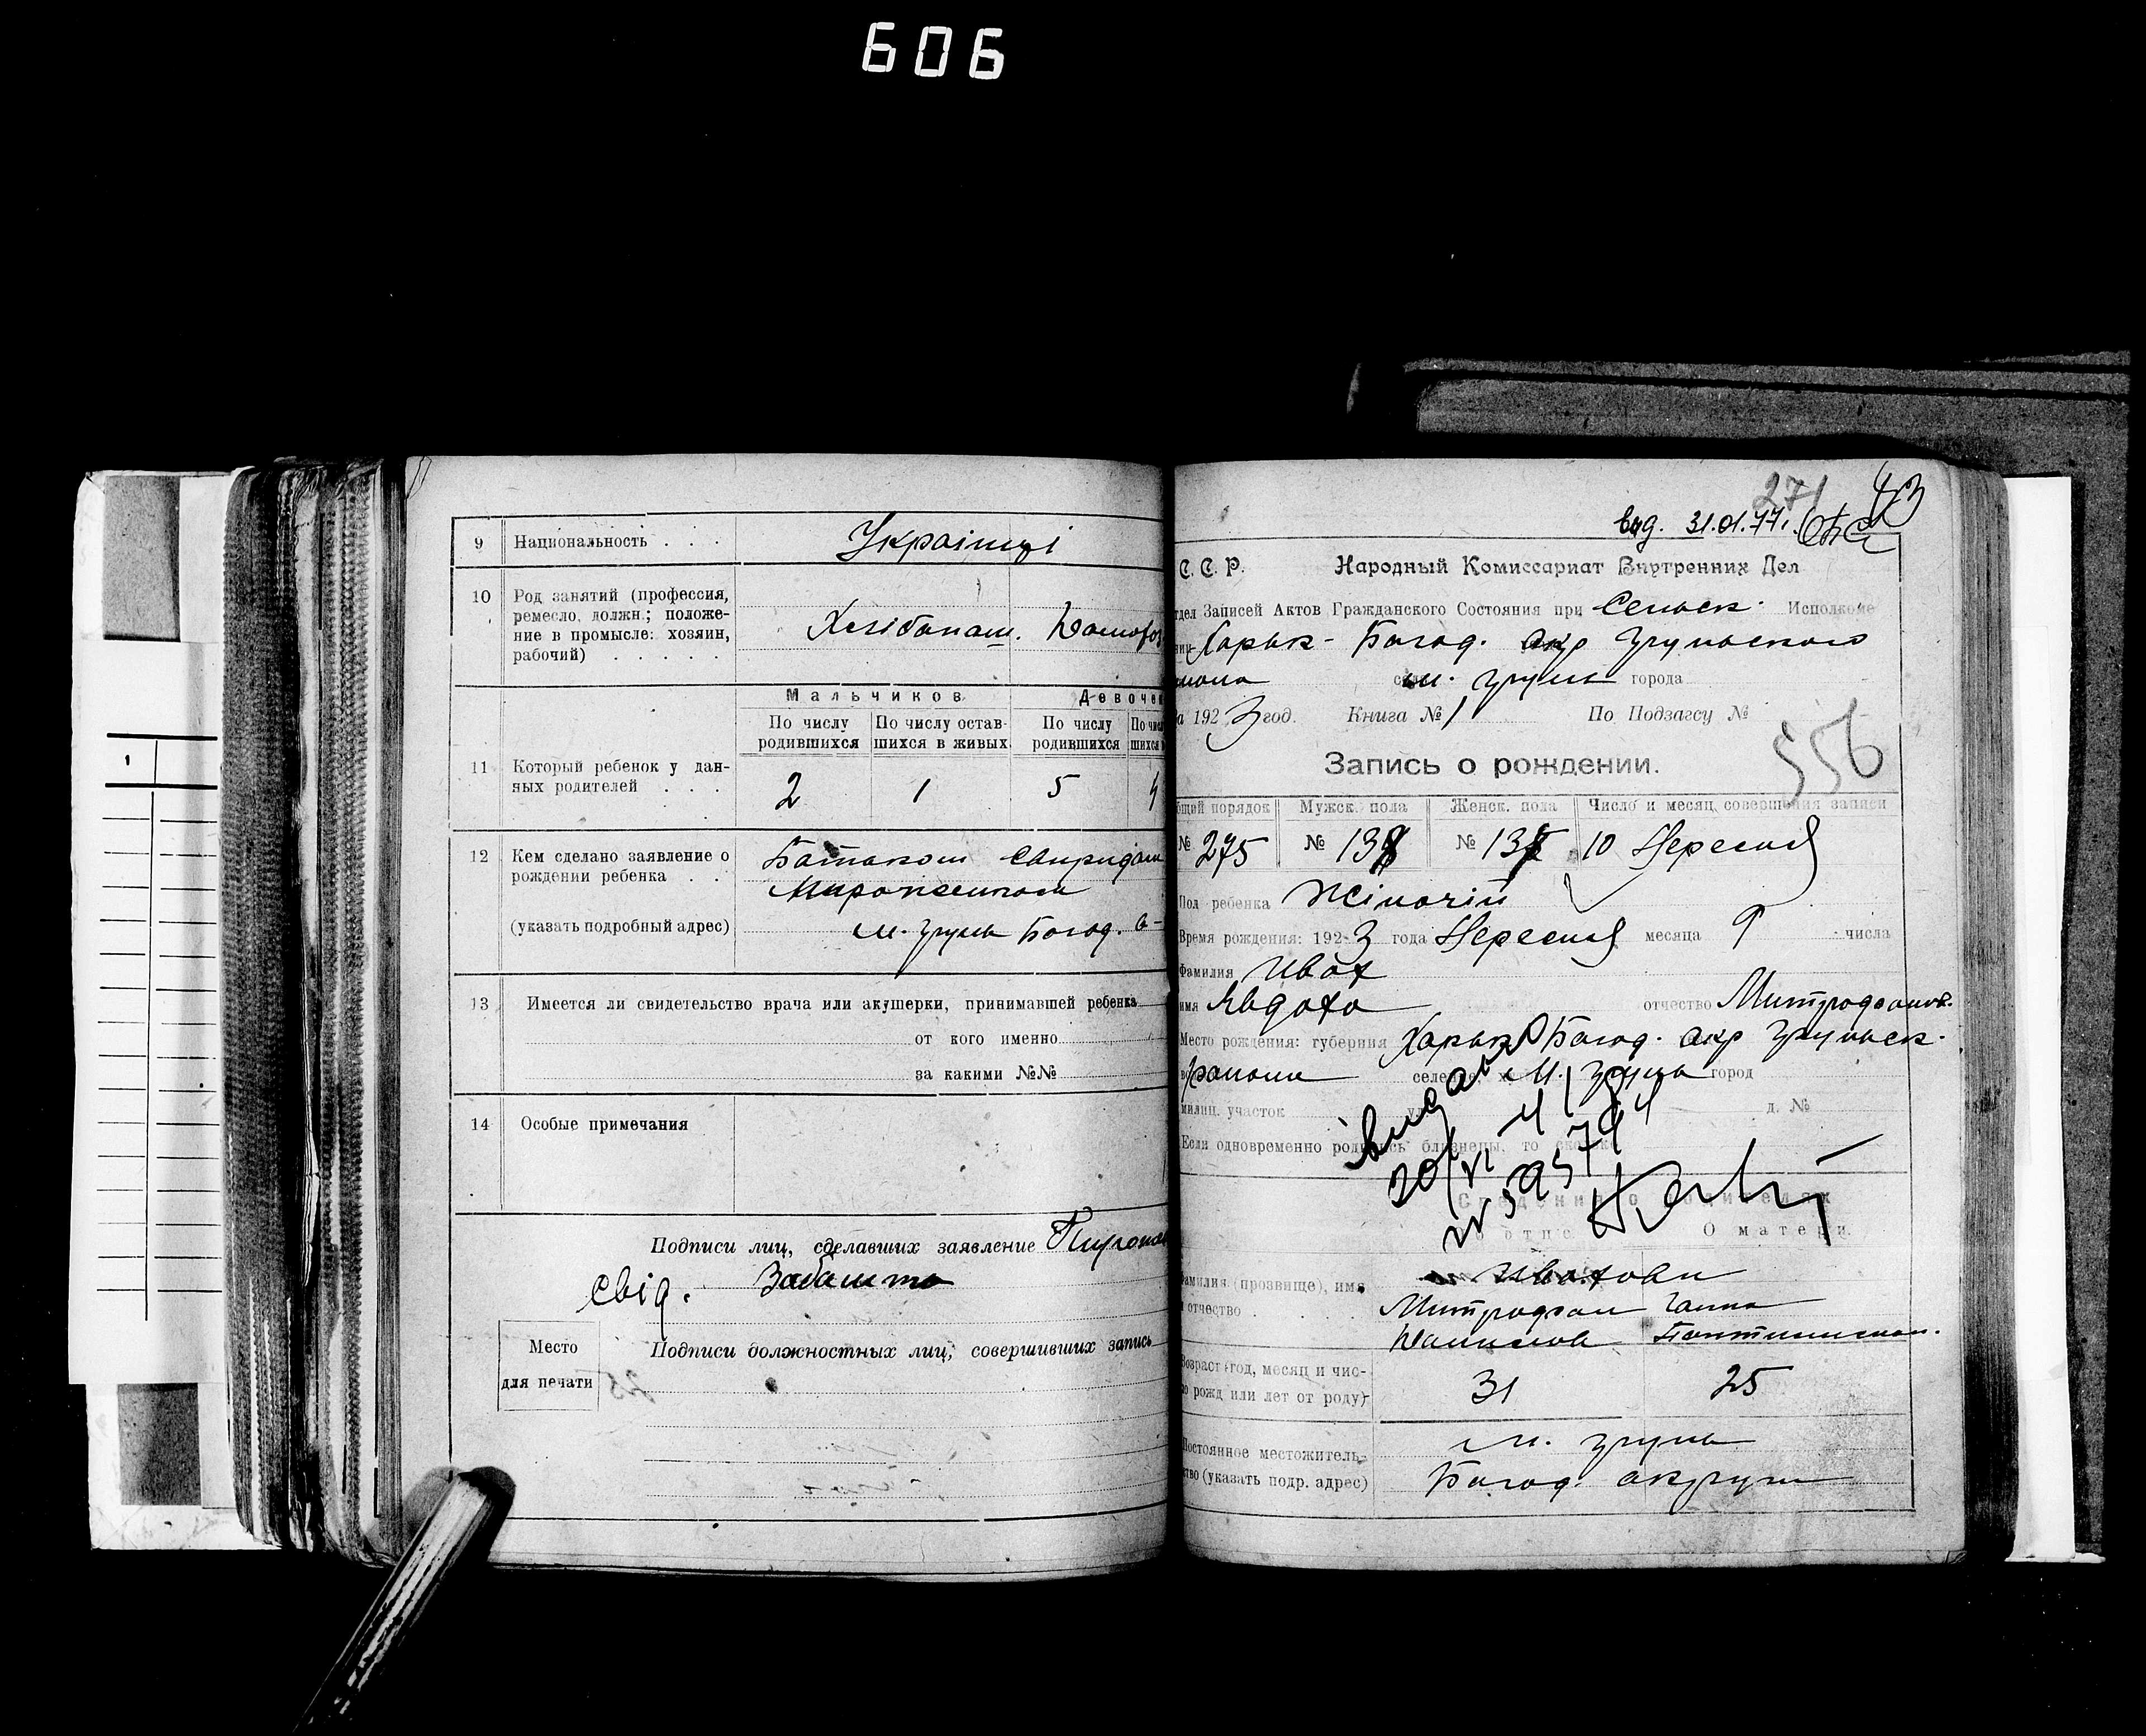 606
9 Национальность . . . Українці
10 Род занятий (профессия,
ремесло, должн.; положе-
ние в промысле: хозяин,
рабочий) . . . . .
Хлібопаш. Домогос
Мальчиков Девочек
По числу родившихся По числу остав-шихся в живых По числу родившихся
11 Который ребенок у дан-
ных родителей . . .
2 1 5 4
12 Кем сделано заявление о
рождении ребенка . .
(указать подробный адрес)
Батьком Свиридом
м. Грунь Богод. о-
13 Имеется ли свидетельство врача или акушерки, принимавшей ребенка
от кого именно
за какими №№
14 Особые примечания
Подписи лиц, сделавших заявление
свід. Забашта
Место
для печати
Подписи должностных лиц, совершивших запись
271 43
вид. 31.01.77г.
С. С. Р. Народный Комиссариат Внутренних Дел
тдел Записей Актов Гражданского Состояния при Сельск. Исполкоме
Харьк- Богод. окр Грунського
м. Грунь города
а 1923 год. Книга № 1 По Подзагсу №
556
Запись о рождении.
бщий порядок Мужск. пола Женск. пола Число и месяц совершения записи
№ 275 № 13 № 13 10 Вересня
Пол ребенка Жіночій
Время рождения: 1923 года Вересня месяца 9 числа
Фамилия Ивах
имя Явдоха отчество Митрофанов.
Место рождения: губерния Харьк Богод. окр Грунськ.
района селение, м. Грунь город
милиц. участок д. №
Если одновременно родились близнецы, то сколько
видано
20/VI
Сведения о родителях
О матери.
Фамилия (прозвище), имя
и отчество . . . .
Ивахови
Митрофан Ганна
Данилов Пантилимон.
Возраст (год, месяц и чис-
ло рожд или лет от роду)
31 25
Постоянное местожитель-
ство (указать подр. адрес)
м. Грунь
Богод. округи